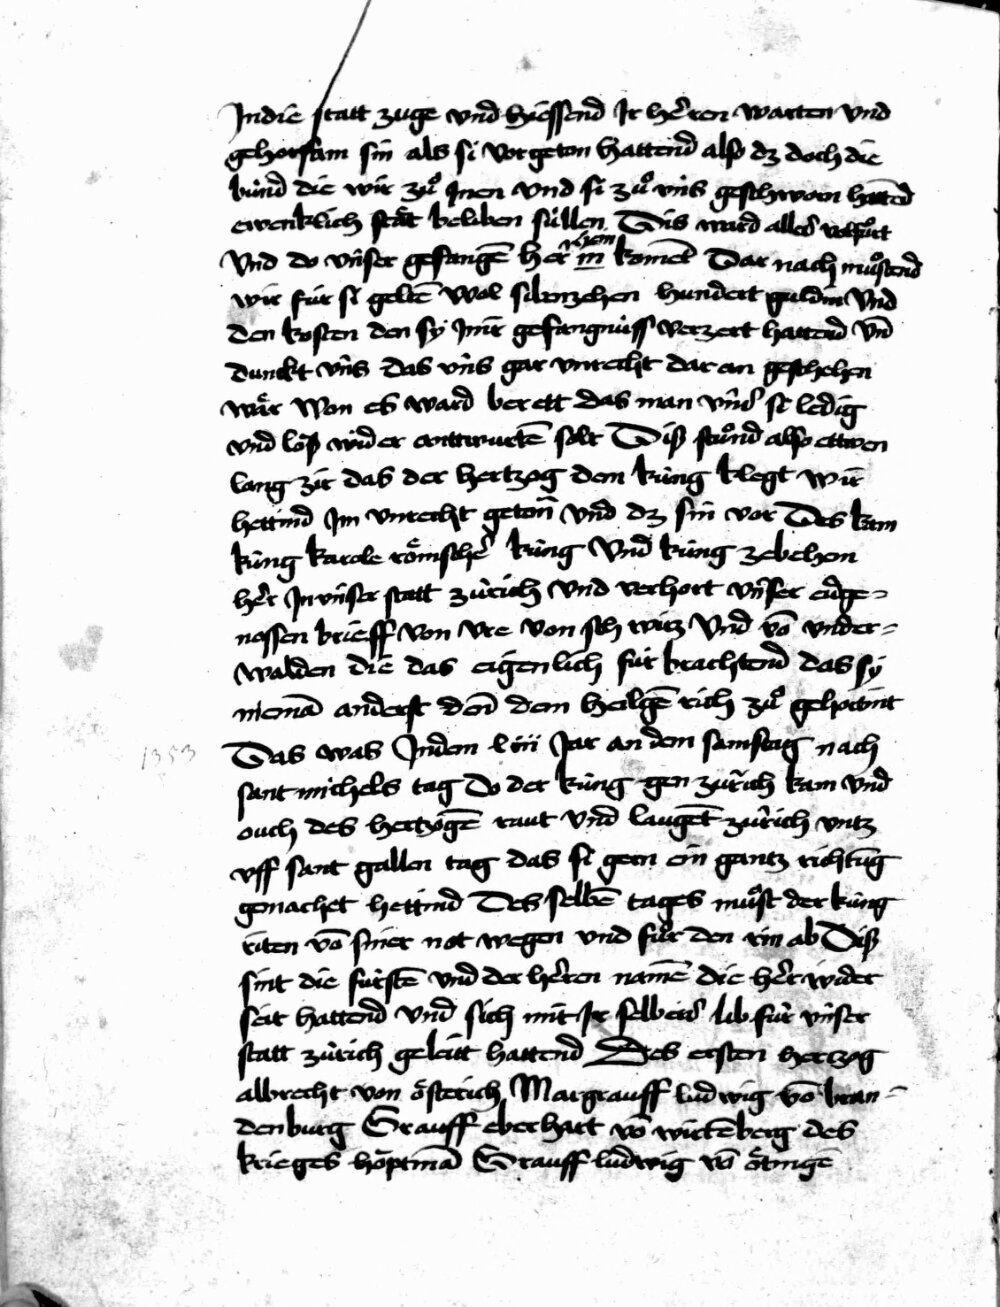 Indie statt zuge vnd hiessend Ir hˀren warten vnd
gehorsam sin als si vorgeton hattend also dz doch die
bünd die wir zuͦ Inen vnd si zuͦ vns geschworn hattēd
ewenklich staͤt beliben süllen Dis ward alles volfuͦrt
Vnd do vnser gefangē her in komēd Dar nach muͦstend
wir für si geltē wol sibenzehen hundert guldin Vnd
den kosten den sy Inir gefangnüss verzert hattend vn̄
dunckt vns das vns gar vnrecht dar an geschehen
waͤr Won es ward berett das man vnd si ledig
vnd loß wider anttwurtē solt Diß stuͦnd also ettwen
lang zit das der hertzog dem küng klegt wir
hettind Im vnrecht geton̄ vnd dz sin vor Des kam
küng karole roͤmschˀ küng vnd küng zebehen
hˀr In vnser statt zürich vnd verhort vnser eidge-
nossen brieff von vre von schwitz Vnd vō vnder-
walden die das eigenlich für brachtend das sy
niemā anderst den̄ dem heilgē rich zuͦ gehortint
1353
Das was Indem liii Jar an dem samstag nach
sant michels tag Do der küng gen zürich kam vnd
ouch des hertzogē raut vnd laugēt zürich vntz
vff sant gallen tag das si gern ein gantz richtūg
gemachet hettind Des selbē tages muͦst der küng
riten vō siner not wegen vnd fuͦr den rin ab Diß
sint die fürstē vnd der hˀren namē die hˀr wider
seit hattend vnd sich mit Ir selbers lib für vnser
statt zürich geleitt hattend Des ersten hertzog
albrecht von oͤsterich Margrauff ludwig vō bran-
denburg Grauff eberhart vō wirtēberg des
krieges hoͤptmā Grauff ludwig vō oͤtingē